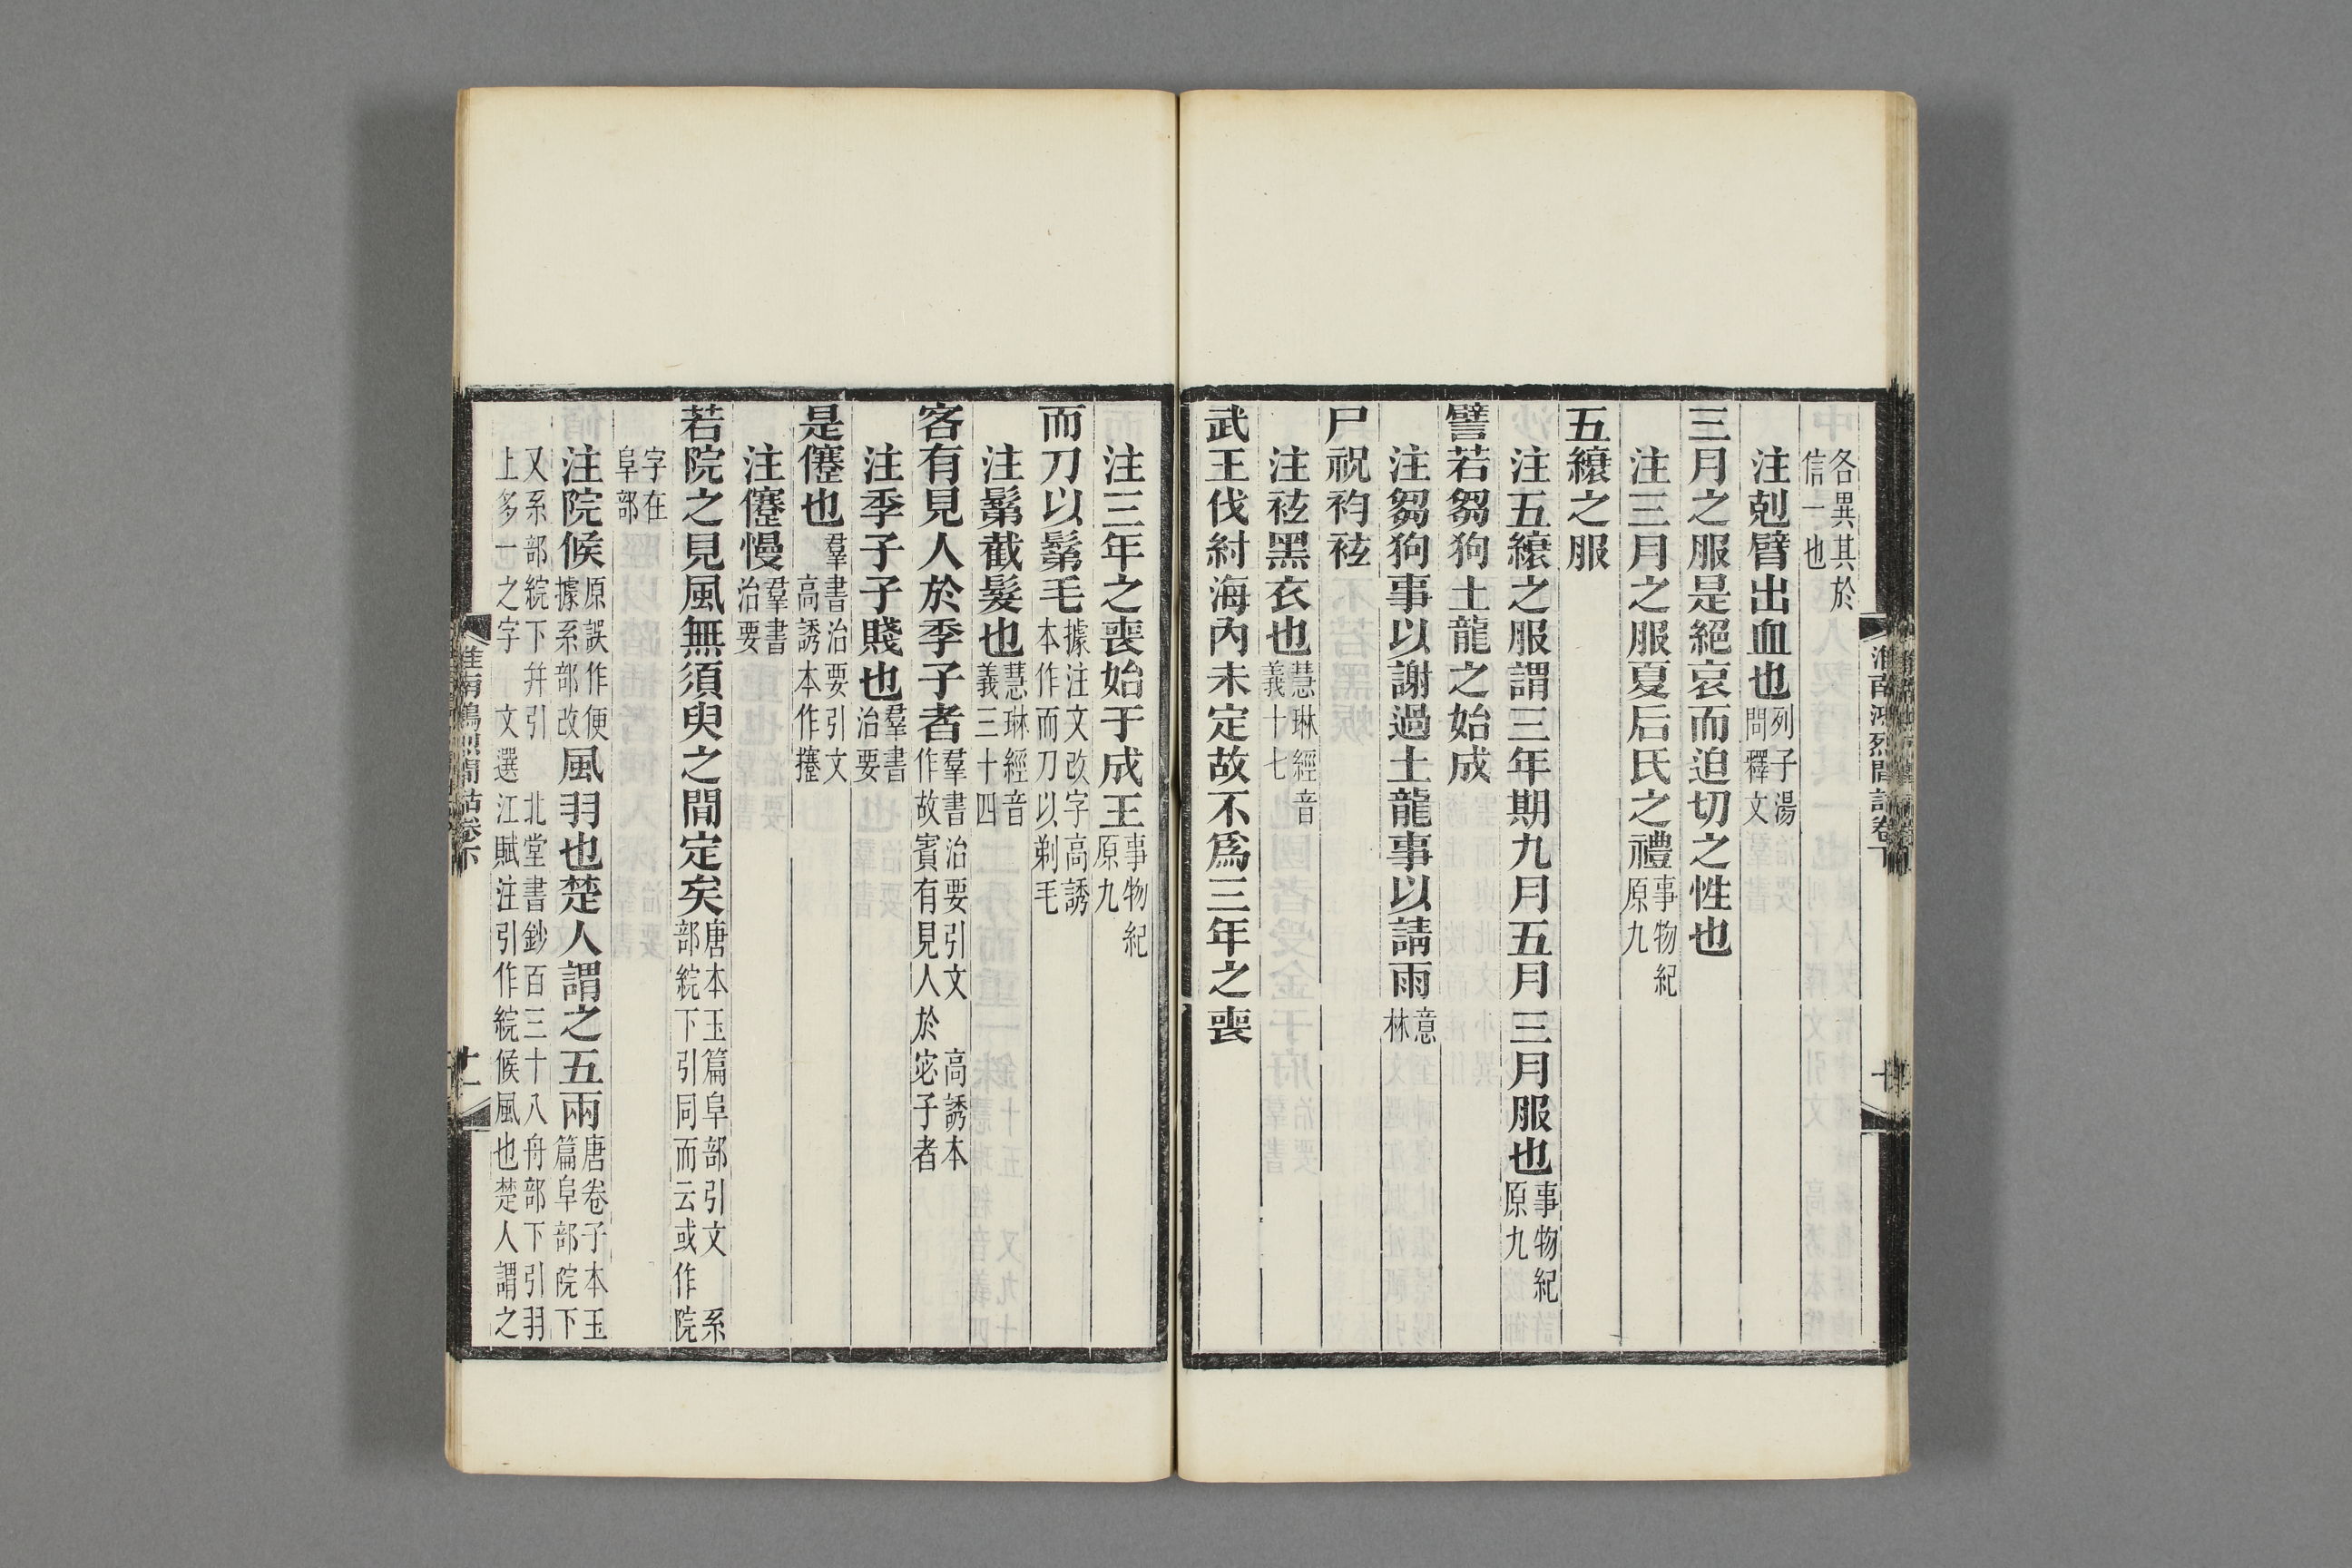 各異其於
信一也
注剋臂出血也列子湯
問釋文
三月之服是絕哀而迫切之性也
注三月之服夏后氏之禮事物紀
原九
五縗之服
注五縗之服謂三年期九月五月三月服也事物紀
原九
譬若芻狗土龍之始成
注芻狗事以謝過土龍事以請雨意
林
尸祝袀袨
注袨黑衣也慧琳經音
義十七
武王伐紂海內未定故不爲三年之喪
淮南鴻烈閒詁卷下
注三年之喪始于成王事物紀
原九
而刀以鬀毛據注文改字高誘
本作而刀以剃毛
注鬀截髮也慧琳經音
義三十四
客有見人於季子者羣書治要引文 高誘本
作故賓有見人於宓子者
注季子子賤也羣書
治要
是僊也羣書治要引文
高誘本作攓
注僊慢羣書
治要
若院之見風無須臾之間定矣唐本玉篇阜部引文 系
部綄下引同而云或作院
字在
阜部
注院候原誤作便
據系部改風羽也楚人謂之五兩唐卷子本玉
篇阜部院下
又系部綄下幷引 北堂書鈔百三十八舟部下引羽
上多一之字 文選江賦注引作綄候風也楚人謂之
淮南鴻烈閒詁卷下